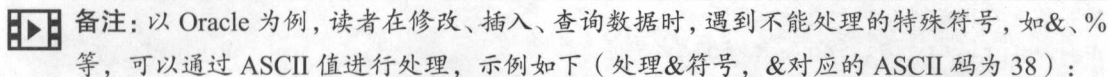 备注：以 Oracle 为例，读者在修改、插入、查询数据时，遇到不能处理的特殊符号，如&、%
等，可以通过 ASCII 值进行处理，示例如下（处理&符号，&对应的 ASCII 码为 38）：